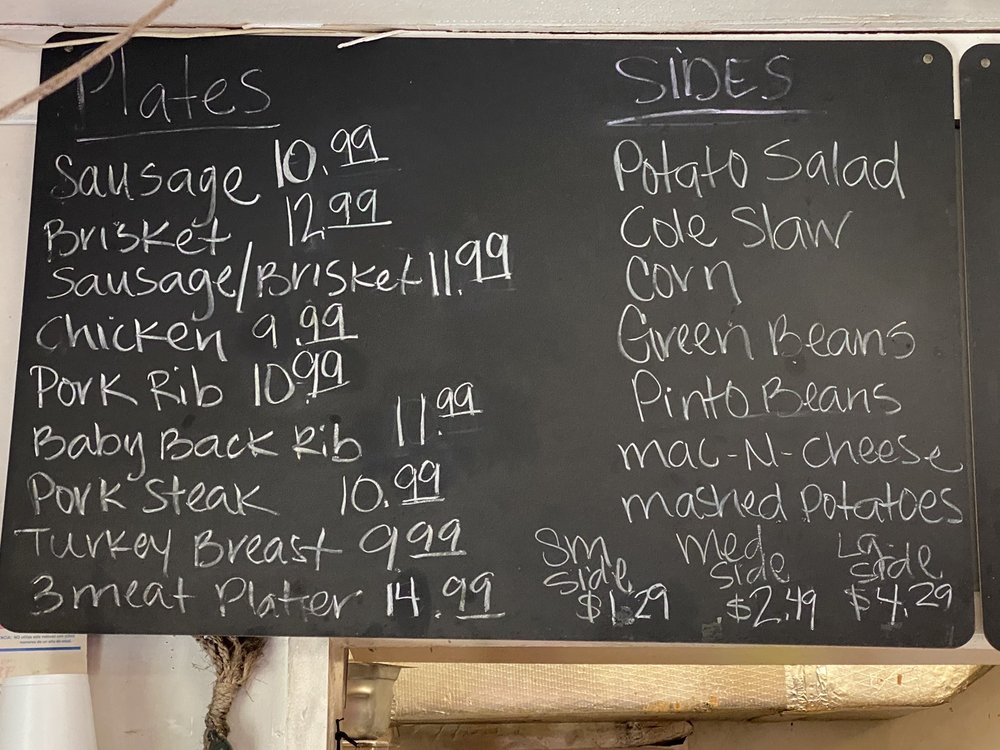 Plates
Sausage 10.99
Brisket 12.99
Sausage/Brisket 11.99
Chicken 9.99
Pork Rib 10.99
Baby Back Rib 11.99
Pork Steak 10.99
Turkey Breast 9.99
3 meat Platter 14.99
SIDES
Potato Salad
Cole Slaw
Corn
Green Beans
Pinto Beans
mac-N-cheese
mashed Potatoes
Sm Side $1.29
Med Side $2.49
Lg Side $4.29